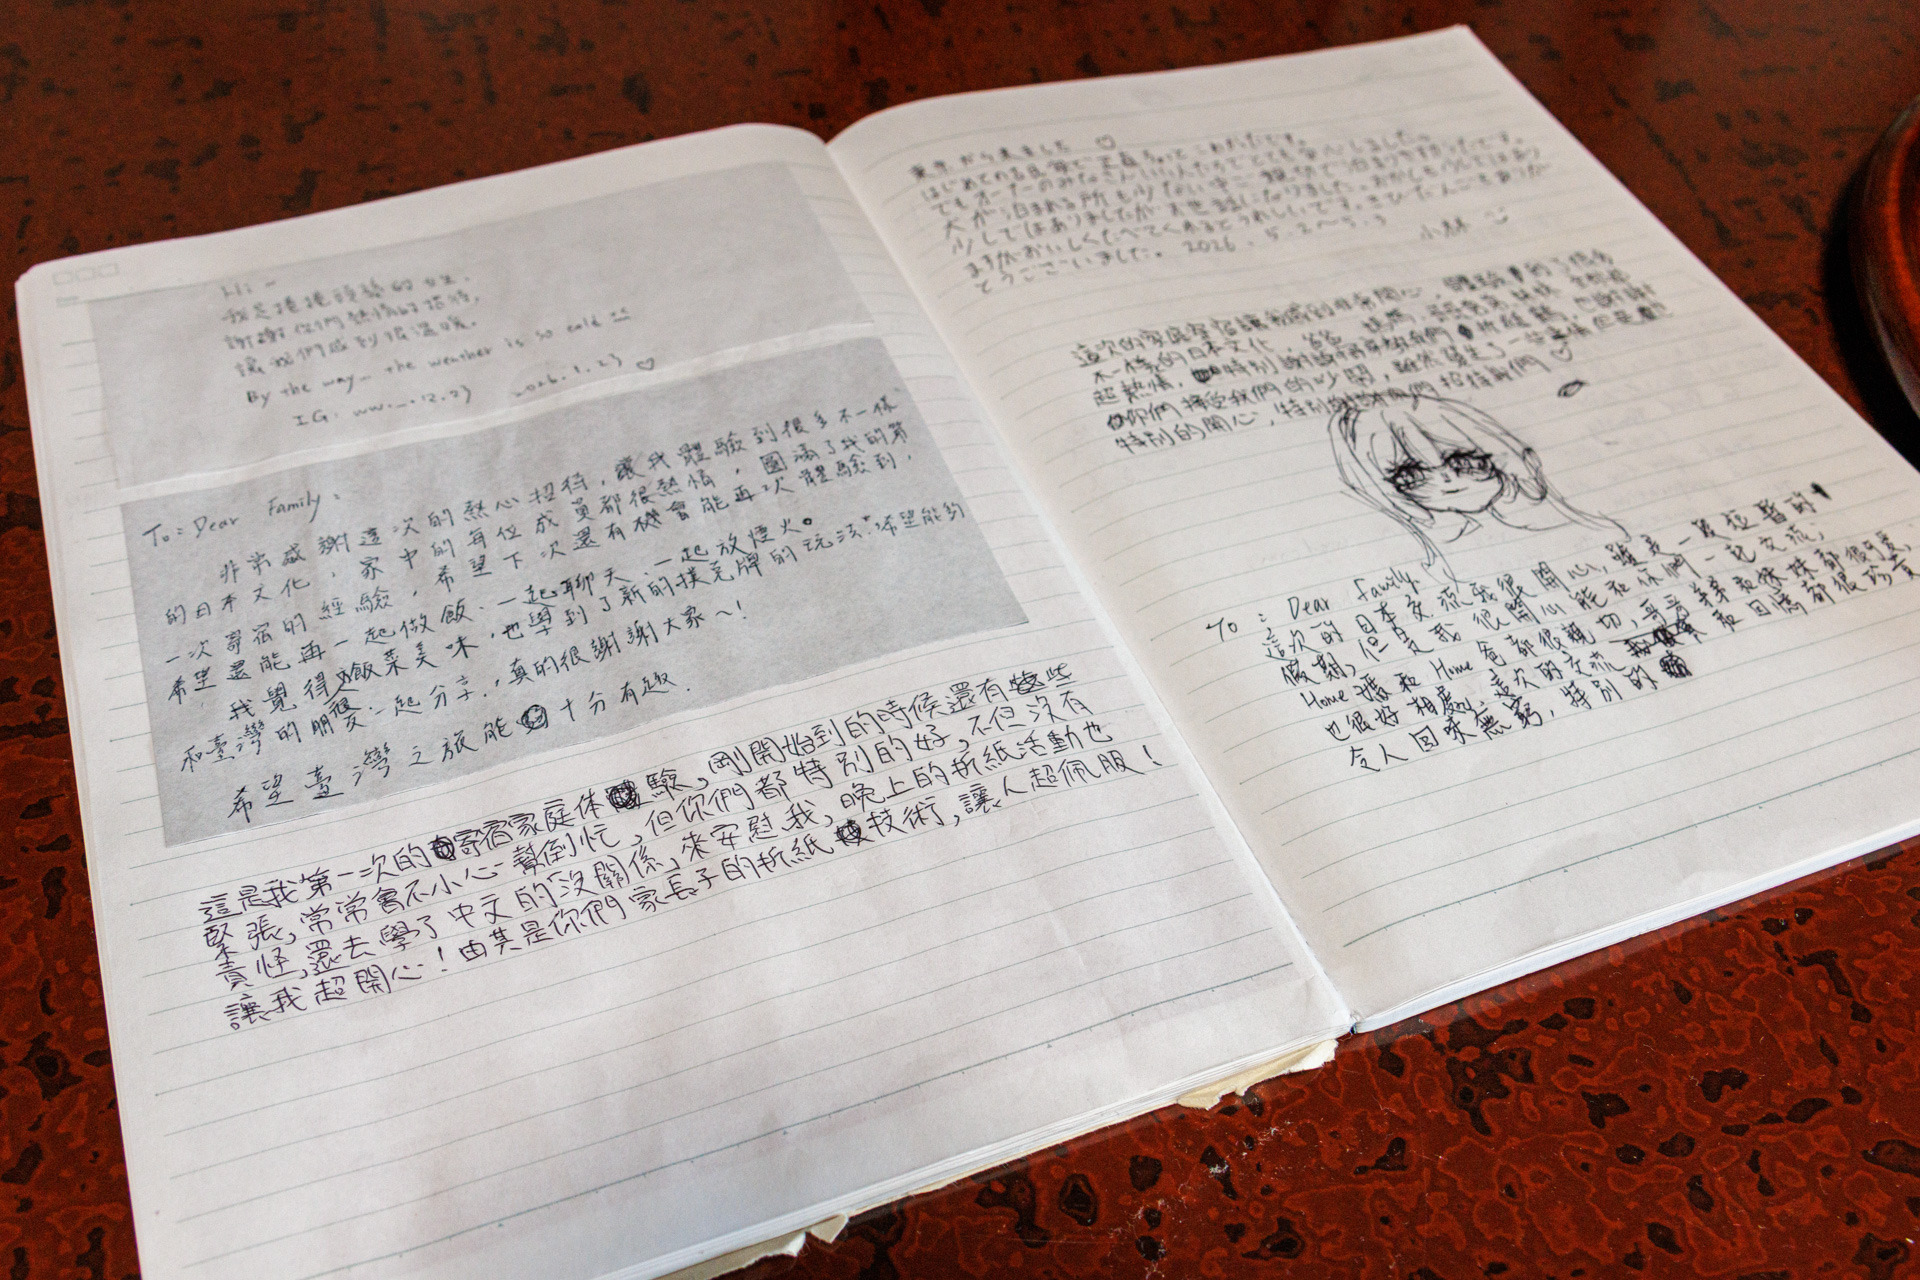 Hi~
我是捲捲頭髮的女生,
謝謝你們熱情的招待,
讓我們感到很溫暖.
By the way… the weather is so cold
IG: ww._.12.23 2026.1.23 ♡
To: Dear Family:
非常感謝這次的熱心招待, 讓我體驗到很多不一樣
的日本文化, 家中的每位成員都很熱情, 圓滿了我的第
一次寄宿的經驗, 希望下次還有機會能再次體驗到,
希望還能再一起做飯.一起聊天.一起放煙火。
我覺得飯菜美味, 也學到了新的撲克牌的玩法.希望能夠
和臺灣的朋友一起分享., 真的很謝謝大家~!
希望臺灣之旅能十分有趣.
這是我第一次的寄宿家庭体驗, 剛開始到的時候還有些
緊張, 常常會不小心幫倒忙, 但你們都特別的好, 不但沒有
責怪, 還去學了中文的"沒關係, 來安慰我, 晚上的折紙活動也
讓我超開心! 由其是你們家長子的折紙技術, 讓人超佩服!
東京から来ました ♡
はじめての
でもオーナーのみなさんいい人たちでとても安心しました。
犬が泊まれる所も少ない中ご親切で泊まり
少しではありましたがお世話になりました。おかしも少しではあり
ますがおいしくたべてくれるとうれしいです。きびだんごもありが
とうございました。 2026.5.2〜5.3 小林
這次的家庭寄宿讓我感到非常開心, 體驗到的了很多
不一樣的日本文化, 爸爸、媽媽、哥哥弟弟妹妹 全部都
超熱情, 特別謝謝 我們折紙鶴, 也謝謝
你們接受我們的吵鬧, 雖然發生了一些事情但是
特別的開心, 特別謝謝你們招待我們 ♡
To: Dear Family.
這次的日本交流我很開心, 雖是一段短暫的
假期, 但是我很開心能和你們一起交流,
Home媽和Home爸都很親切, 哥哥弟弟和妹妹都很可愛,
也很好相處, 這次的交流 和回憶都很珍貴
令人回味無窮, 特別的